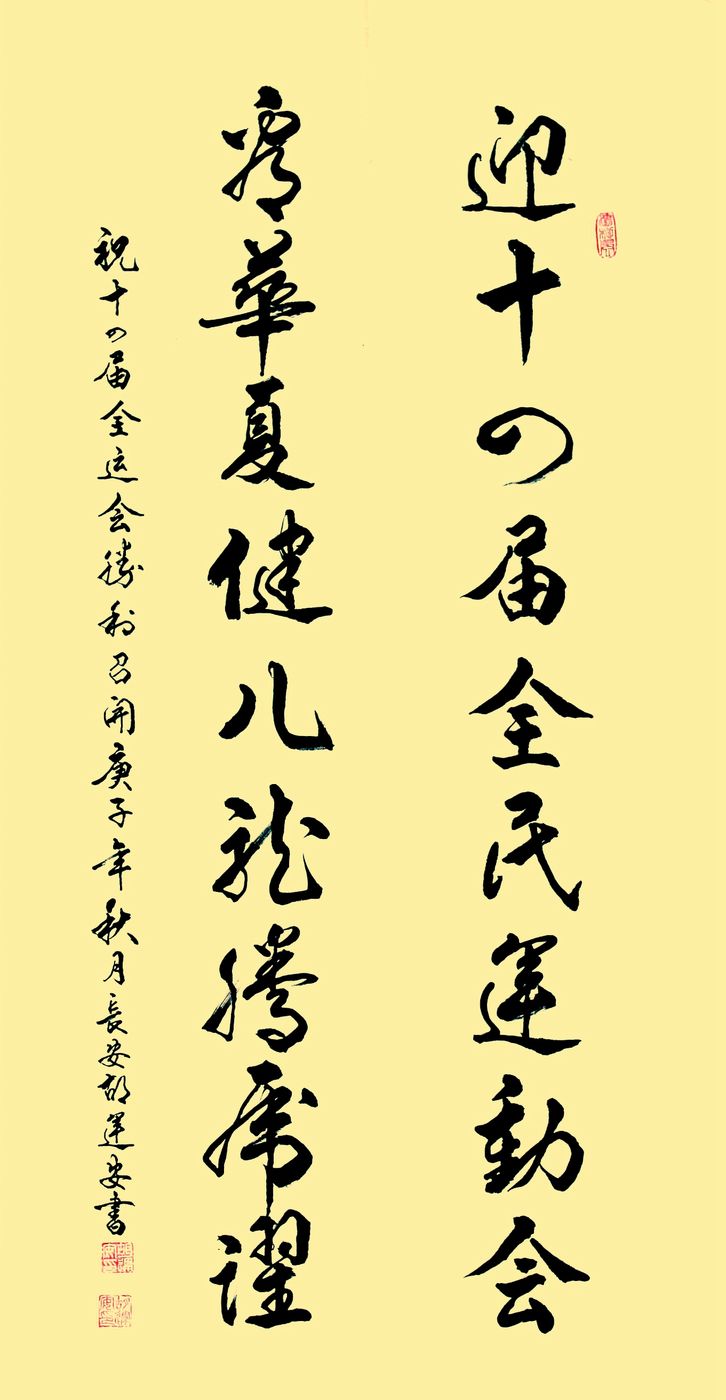 迎十四届全民運動会
看華夏健儿龍騰虎躍
祝十四届全运会勝利召開庚子年秋月長安胡運安書